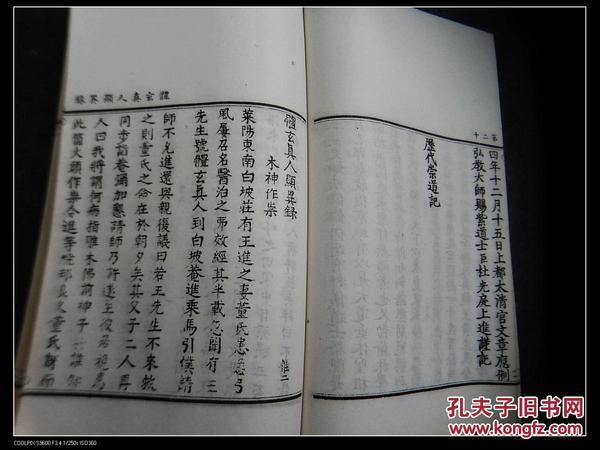 第二十
四年十二月十五日上都太清宮文章應制
弘教大師賜紫道士臣杜光庭上進謹記
歷代崇道記
體玄真人顯異錄
體玄真人顯異錄
雖二
木神作祟
萊陽東南白坡莊有王進之妻董氏患惡弓
風屢召名醫治之弗效經其半載忽聞有三
先生號體玄真人到白坡菴進乘馬引僕請
師不允進還與親後議曰若王先生不來救
之則董氏之命在於朝夕矣其父子二人再
同步詣菴彌加懇請師乃許遂至彼視患
人曰我將謂何
作祟令進等
孔夫子旧书网
www.kongfz.com
COOLPIX S9600 F3.4 1/250s ISO360